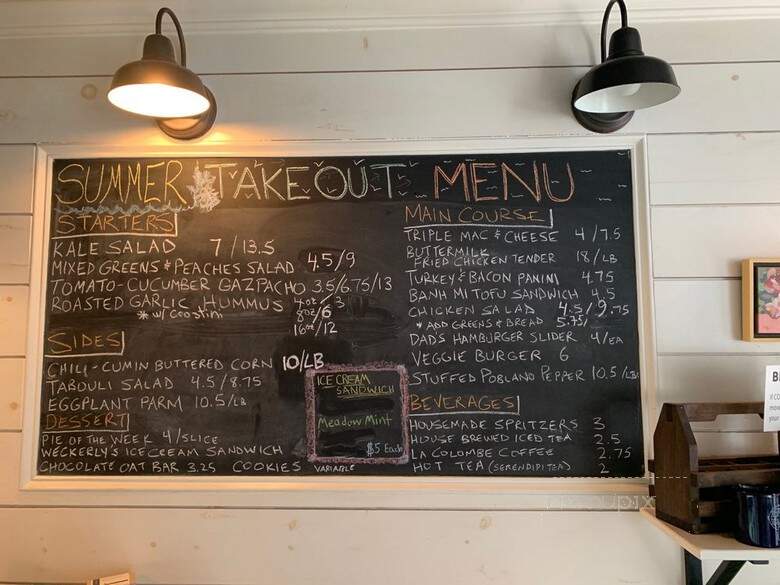 SUMMER TAKE OUT MENU
STARTERS
KALE SALAD 7/13.5
MIXED GREENS & PEACHES SALAD 4.5/9
TOMATO-CUCUMBER GAZPACHO 3.5/6.75/13
ROASTED GARLIC HUMMUS 4oz/3
* w/ crostini 8oz/6
16oz/12
SIDES
CHILI-CUMIN BUTTERED CORN 10/LB
TABOULI SALAD 4.5/8.75
EGGPLANT PARM 10.5/LB
DESSERT
PIE OF THE WEEK 4/SLICE
WECKERLY'S ICE CREAM SANDWICH
CHOCOLATE OAT BAR 3.25 COOKIES VARIABLE
ICE CREAM
SANDWICH
Meadow Mint
$5 Each
MAIN COURSE
TRIPLE MAC & CHEESE 4/7.5
BUTTERMILK
FRIED CHICKEN TENDER 18/LB
TURKEY & BACON PANINI 4.75
BANH MI TOFU SANDWICH 4.5
CHICKEN SALAD 4.5/9.75
* ADD GREENS & BREAD 5.75/
DAD'S HAMBURGER SLIDER 4/EA
VEGGIE BURGER 6
STUFFED POBLANO PEPPER 10.5/LB
BEVERAGES
HOUSEMADE SPRITZERS 3
HOUSE BREWED ICED TEA 2.5
LA COLOMBE COFFEE 2.75
HOT TEA (SERENDIPITEA) 2